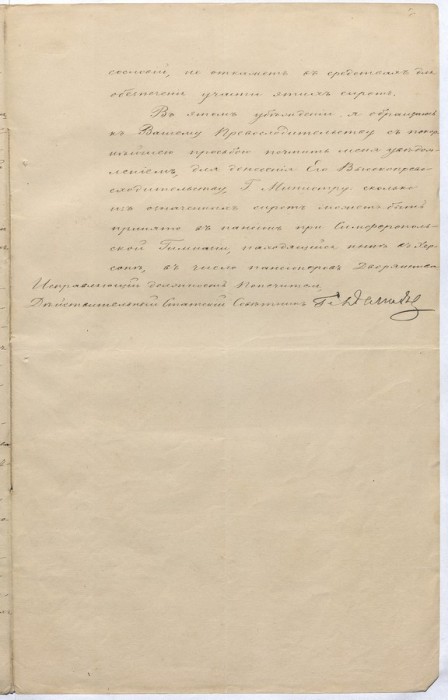 сословій, не откажетъ въ средствахъ для
обезпеченія участи этихъ сиротъ.
Въ этомъ убѣжденіи, я обращаюсь
къ Вашему Превосходительству съ покор-
нѣйшею просьбою почтить меня увѣдом-
леніемъ, для донесенія Его Высокопрево-
сходительству, Г. Министру, сколько
изъ означенныхъ сиротъ можетъ быть
принято въ пансіонъ при Симферополь-
ской Гимназіи, находящейся нынѣ въ Хер-
сонѣ, въ число пансіонеровъ Дворянства.
Исправляющій должность Попечителя,
Дѣйствительный Статскій Совѣтникъ